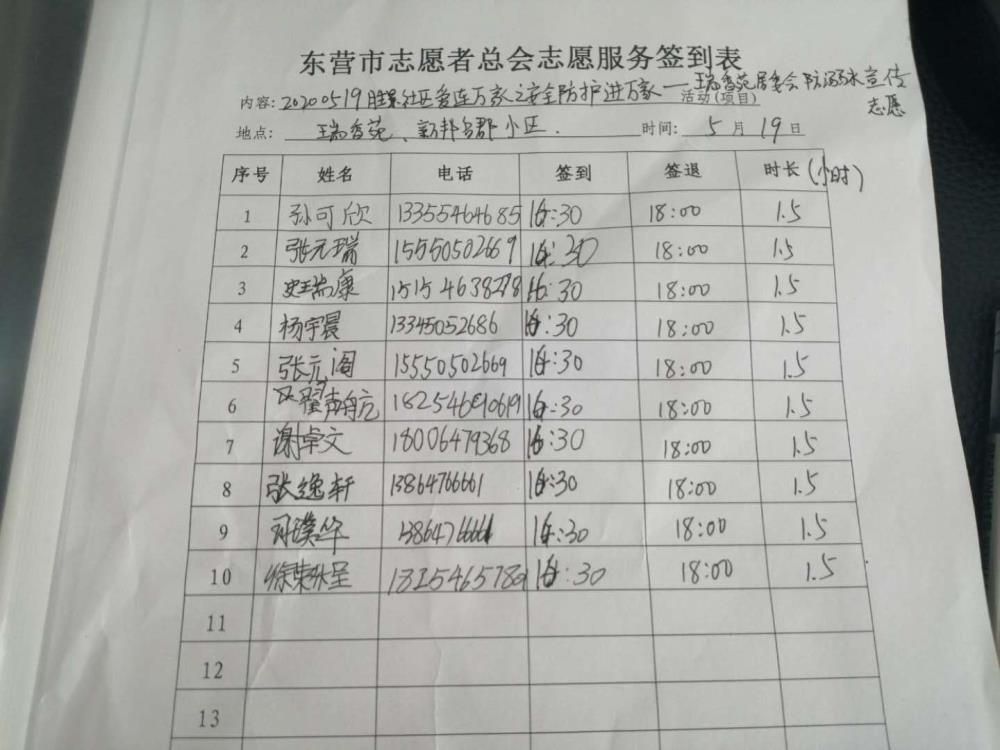 东营市志愿者总会志愿服务签到表
内容: 20200519胜景社区爱连万家之安全防护进万家一瑞香苑居委会防溺水宣传志愿 活动(项目)
地点: 瑞香苑、新邦名郡小区. 时间: 5月19日
序号 姓名 电话 签到 签退 时长(小时)
1 孙可欣 13355464685 16:30 18:00 1.5
2 张元瑞 15550502669 16:30 18:00 1.5
3 史瑞康 15154638278 16:30 18:00 1.5
4 杨宇晨 13345052686 16:30 18:00 1.5
5 张元阁 15550502669 16:30 18:00 1.5
6 16:30 18:00 1.5
7 谢卓文 18006479368 16:30 18:00 1.5
8 张逸轩 13864766661 16:30 18:00 1.5
9 16:30 18:00 1.5
10 16:30 18:00 1.5
11
12
13